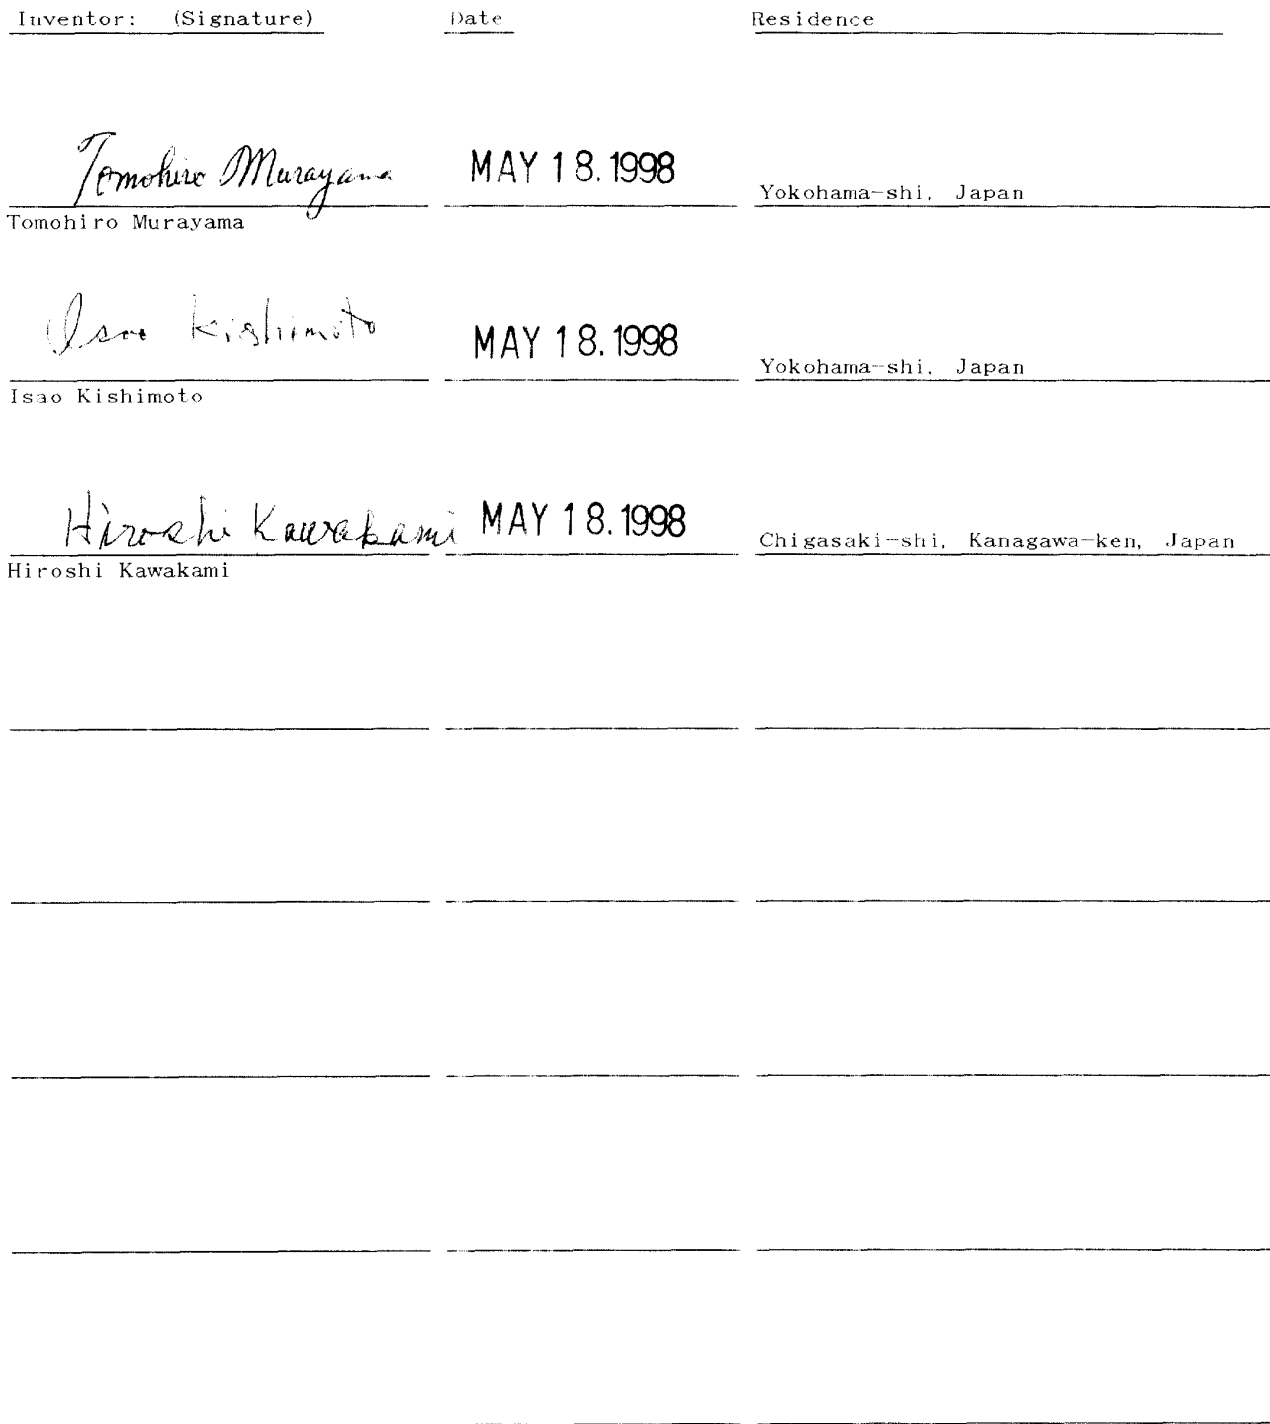 Inventor: (Signature) Date Residence
Tomohiro Murayama MAY 18.1998 Yokohama-shi, Japan
Tomohiro Murayama
Isao Kishimoto MAY 18.1998 Yokohama-shi, Japan
Isao Kishimoto
Hiroshi Kawakami MAY 18.1998 Chigasaki-shi, Kanagawa-ken, Japan
Hiroshi Kawakami